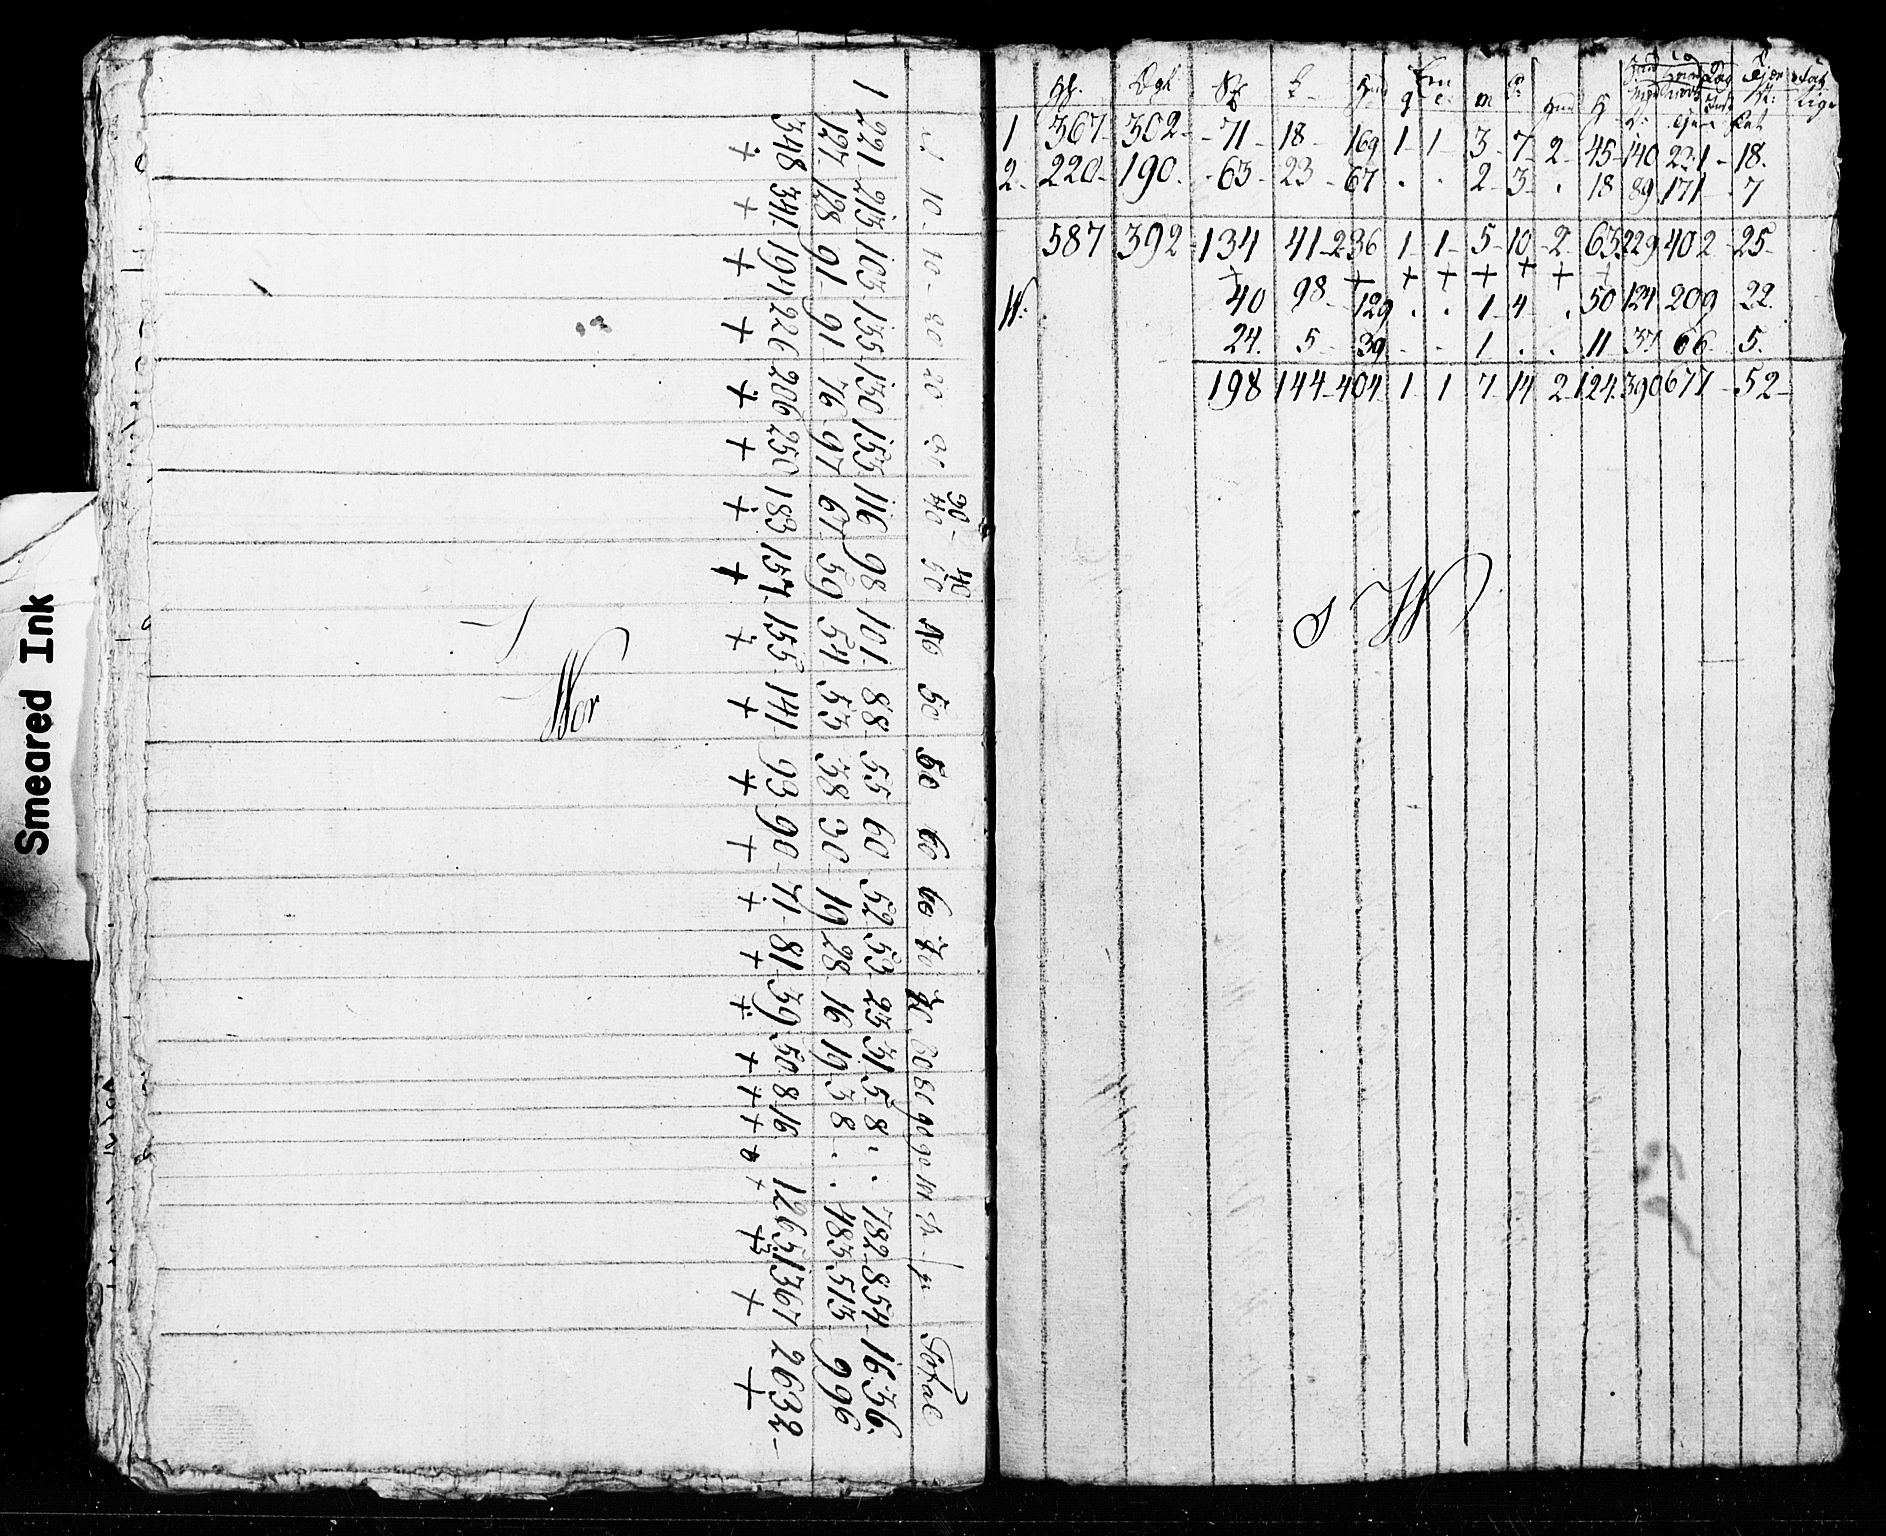 Smeared Ink
10 - 10 - 20 20 30 40 - 40 50 40 50 50 60 60 70 80 80 90 90 Total
1 221 213 103 135 130 153 116 98 101 88 55 60 52 53 23 31 5 8 . . 782 854 1636
127 128 91 91 76 97 67 59 54 53 38 30 19 28 16 19 3 8 . . 483 513 996
348 341 194 226 206 250 183 157 155 141 93 90 71 81 39 50 8 16 1265 1367 2632
+ + + + + + + + + + + + + + + + + + + + +
Wor
1 367 302 71 18 169 1 1 3 7 2 45 140 231 18
2 220 190 63 23 67 . . 2 3 . 18 89 171 7
587 392 134 41 236 1 1 5 10 2 63 229 402 25
+ + + + + + + +
W: 40 98 129 . . 1 4 . 50 124 209 22
24 5 39 . . 1 . . 11 37 66 5
198 144 404 1 1 7 14 2 124 390 677 52
W